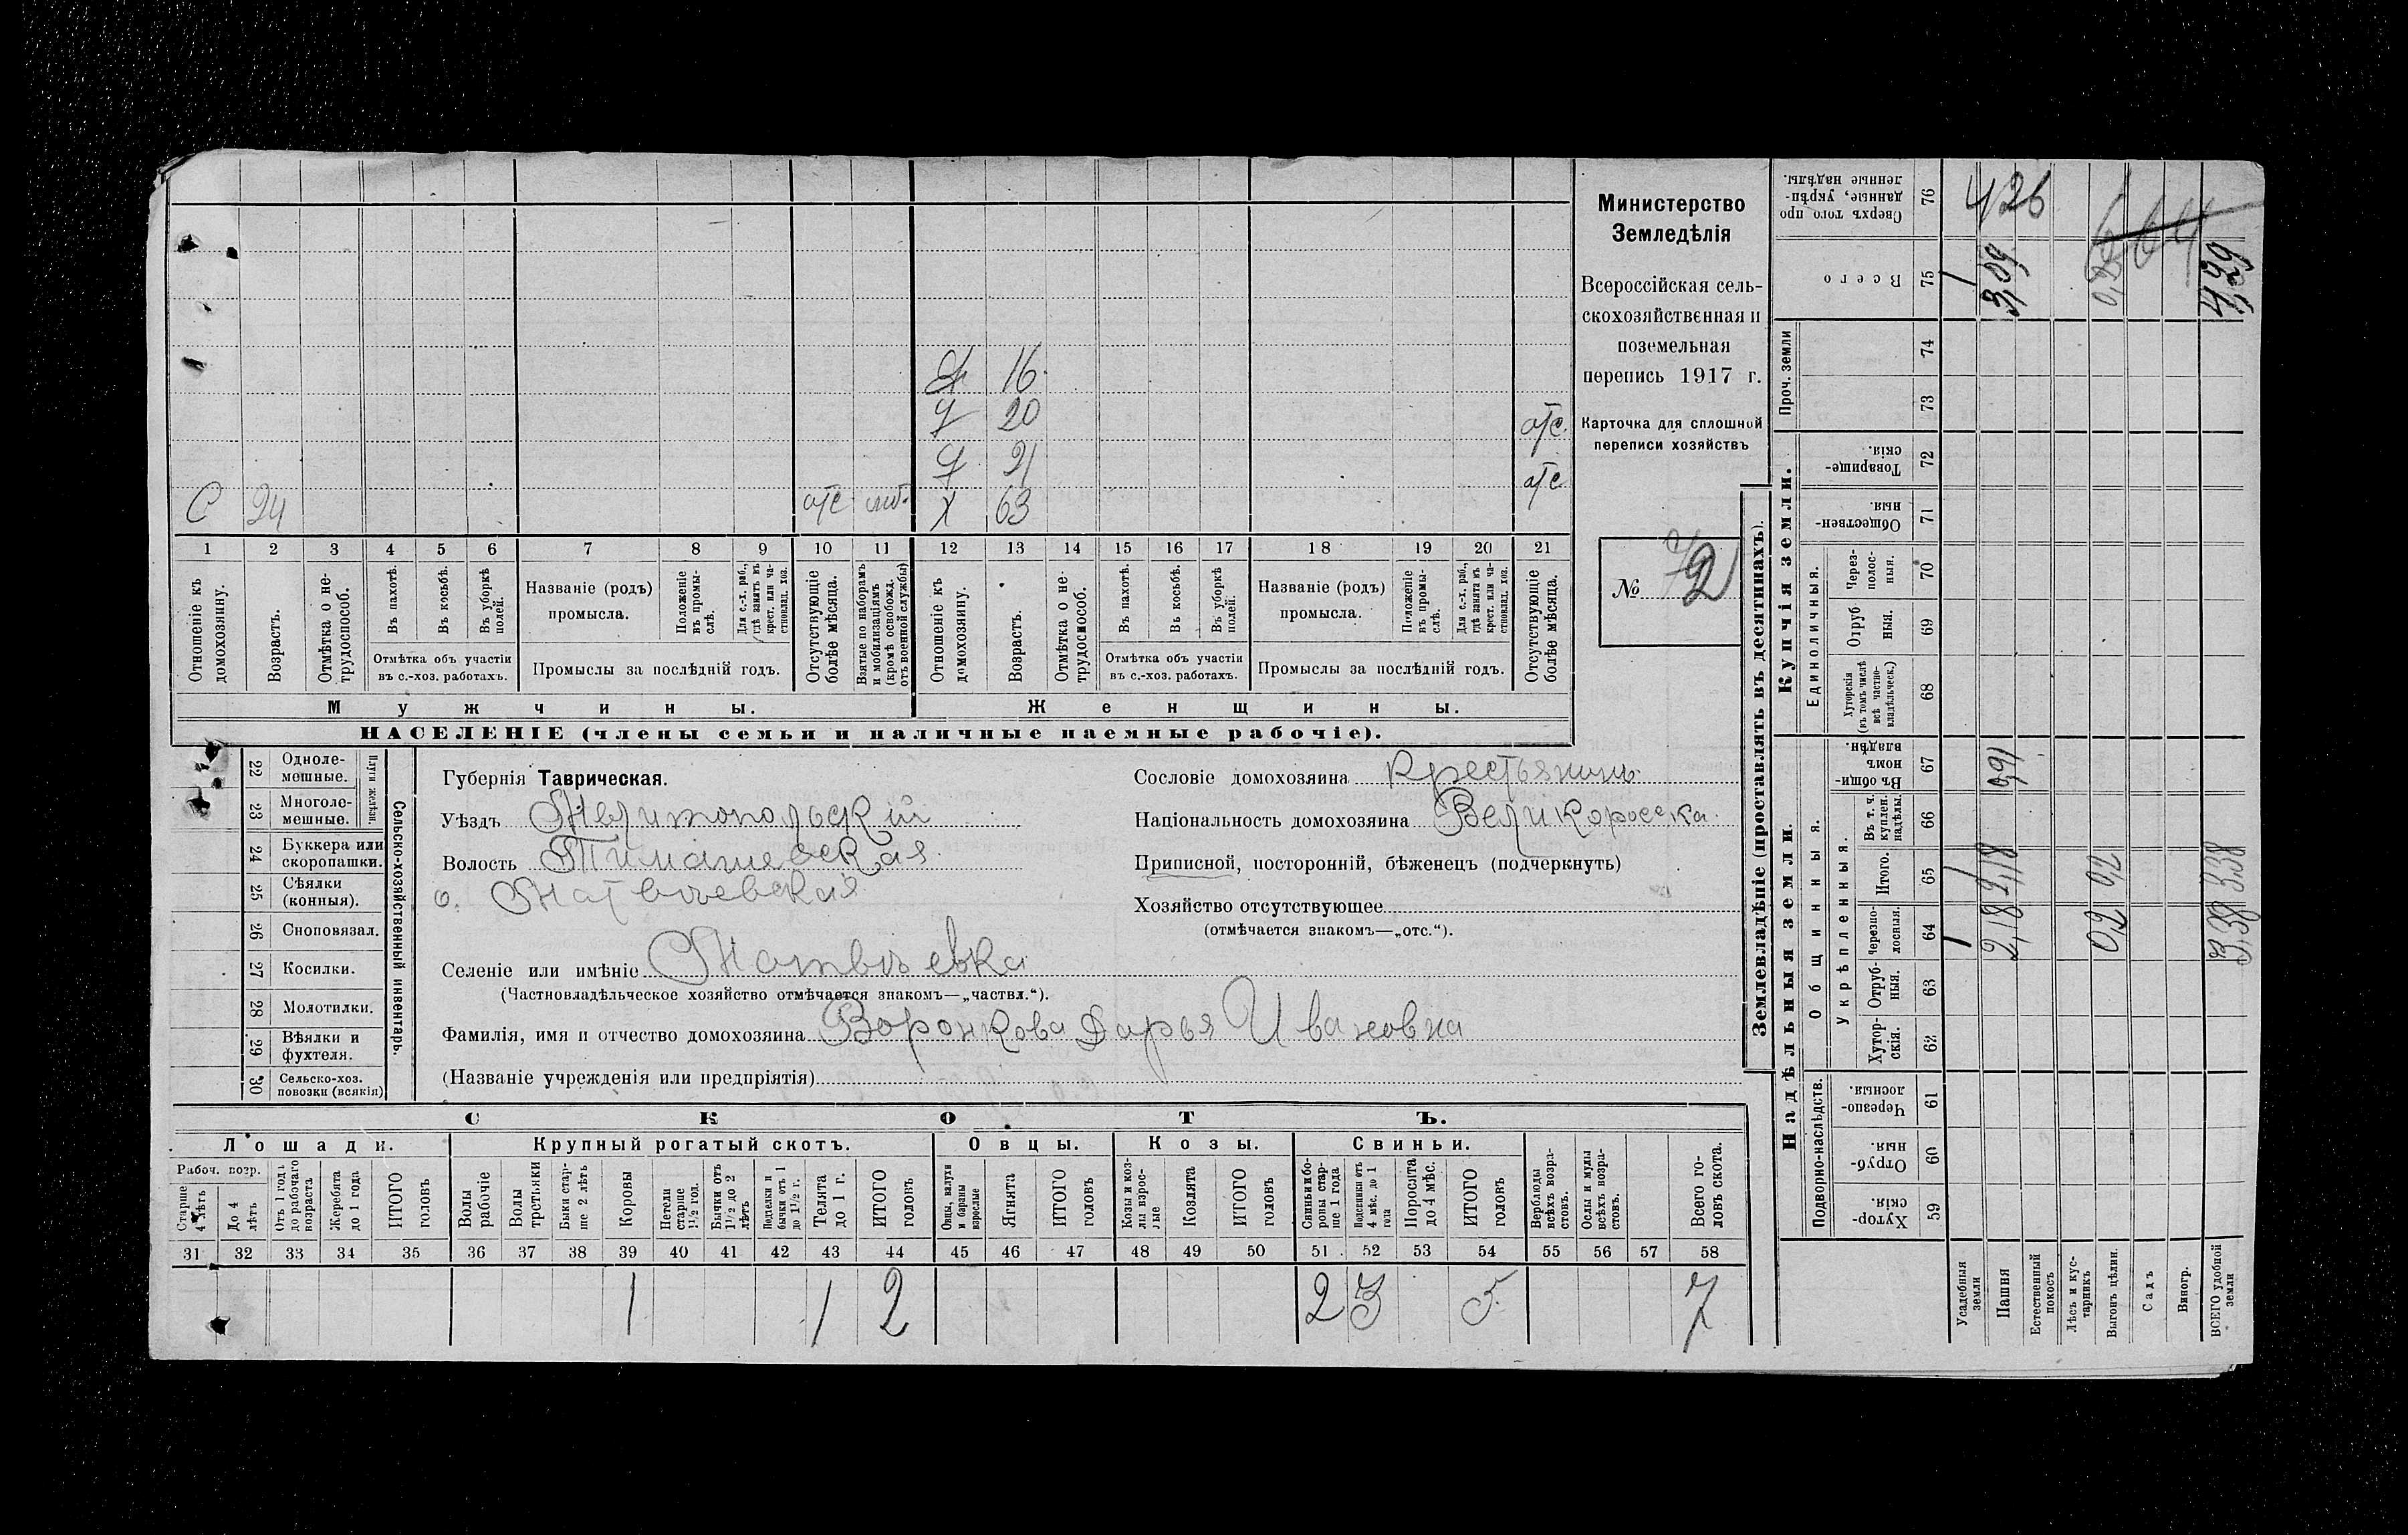 Министерство
Земледѣлія
Всероссійская сель-
скохозяйственная и
поземельная
перепись 1917 г.
Карточка для сплошной
переписи хозяйствъ
№ 72
Д 16
Д 20 отс.
Д 21 отс
С 24 отс моб. Х 63 отс
1 2 3 4 5 6 7 8 9 10 11 12 13 14 15 16 17 18 19 20 21
Отношеніе къ домохозяину.
Возрастъ.
Отмѣтка о не-трудоспособ.
Въ пахотѣ.
Въ косьбѣ.
Въ уборкѣ полей.
Отмѣтка объ участіи
въ с.-хоз. работахъ.
Названіе (родъ)
промысла.
Положеніе въ промы-слѣ.
Для с.-х. раб., гдѣ занятъ въ крест. или ча-стновлад. хоз.
Промыслы за послѣдній годъ.
Отсутствующіе болѣе мѣсяца.
Взятые по наборамъ и мобилизаціямъ (кромѣ освобожд. отъ военной службы)
Отношеніе къ домохозяину.
Возрастъ.
Отмѣтка о не-трудоспособ.
Въ пахотѣ.
Въ косьбѣ.
Въ уборкѣ полей.
Отмѣтка объ участіи
въ с.-хоз. работахъ.
Названіе (родъ)
промысла.
Положеніе въ промы-слѣ.
Для с.-х. раб., гдѣ занята въ крест. или ча-стновлад. хоз.
Промыслы за послѣдній годъ.
Отсутствующіе болѣе мѣсяца.
Мужчины. Женщины.
НАСЕЛЕНІЕ (члены семьи и наличные наемные рабочіе).
22 Одноле-мешные.
23 Многоле-мешные.
Плуги желѣзн.
24 Буккера или скоропашки.
25 Сѣялки (конныя).
26 Сноповязал.
27 Косилки.
28 Молотилки.
29 Вѣялки и фухтеля.
30 Сельско-хоз. повозки (всякія)
Сельско-хозяйственный инвентарь.
Губернія Таврическая.
Уѣздъ Мелитопольскій
Волость Тимашевская
о. Матвѣевская
Селеніе или имѣніе Матвѣевка
(Частновладѣльческое хозяйство отмѣчается знакомъ—„частвл.“).
Фамилія, имя и отчество домохозяина Воронкова Дарья Ивановна
(Названіе учрежденія или предпріятія)
Сословіе домохозяина Крестьянинъ
Національность домохозяина Великоросска
Приписной, посторонній, бѣженецъ (подчеркнуть)
Хозяйство отсутствующее
(отмѣчается знакомъ—„отс.“).
СКОТЪ.
Лошади. Крупный рогатый скотъ. Овцы. Козы. Свиньи.
Рабоч. возр.
Старше 4 лѣтъ
До 4 лѣтъ
Отъ 1 года до рабочаго возраста
Жеребята до 1 года
ИТОГО головъ
Волы рабочіе
Волы третьяки
Быки стар-ше 2 лѣтъ
Коровы
Петели старше 1½ год.
Бычки отъ 1½ до 2 лѣтъ
Подтелки и бычки отъ 1 до 1½ г.
Телята до 1 г.
ИТОГО головъ
Овцы, валухи и бараны взрослые
Ягнята
ИТОГО головъ
Козы и коз-лы взрос-лые
Козлята
ИТОГО головъ
Свиньи и бо-ровы стар-ше 1 года
Подсвинки отъ 4 мѣс. до 1 года
Поросята до 4 мѣс.
ИТОГО головъ
Верблюды всѣхъ возра-стовъ.
Ослы и мулы всѣхъ возра-стовъ.
Всего го-ловъ скота.
31 32 33 34 35 36 37 38 39 40 41 42 43 44 45 46 47 48 49 50 51 52 53 54 55 56 57 58
1 1 2 2 3 5 7
Землевладѣніе (проставлять въ десятинахъ).
Сверхъ того про-данные, укрѣп-ленные надѣлы. 76
Всего 75
Проч. земли 74 73
Купчія земли.
Товарище-скія. 72
Обществен-ныя. 71
Единоличныя.
Через-полос-ныя. 70
Отруб-ныя. 69
Хуторскія (въ томъ числѣ всѣ частно-владѣльческ.) 68
Надѣльныя земли.
Общинныя.
Въ общин-номъ владѣн. 67
Укрѣпленныя.
Въ т. ч. куплен. надѣлы. 66
Итого. 65
Черезпо-лосныя. 64
Отруб-ныя. 63
Хутор-скія. 62
Подворно-наслѣдств.
Черезпо-лосныя. 61
Отруб-ныя. 60
Хутор-скія. 59
Усадебныя земли
Пашня 2,18 2,18 0,91 3,09 426
Естественный покосъ
Лѣсъ и кус-тарникъ
Выгонъ цѣлин. 0,2 0,2
Садъ
Виногр.
ВСЕГО удобной земли 3,38 3,38